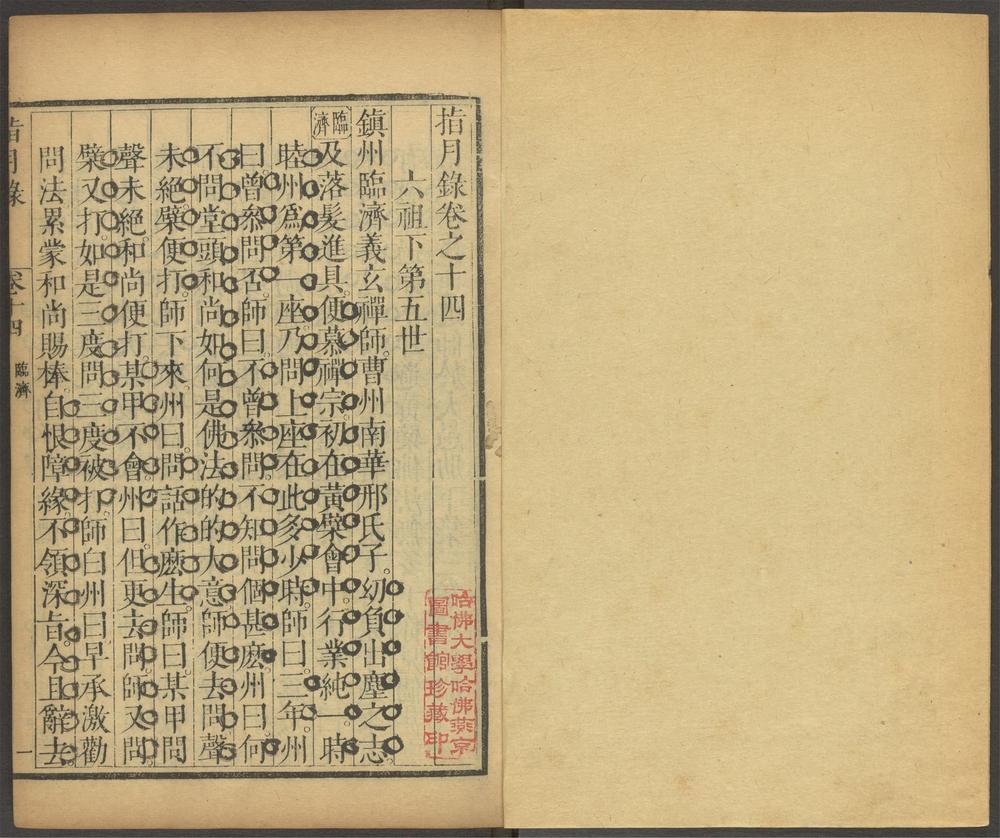 指月錄卷之十四
六祖下第五世
鎮州臨濟義玄禪師。曹州南華邢氏子。幼負出塵之志。
臨濟
及落髮進具。便慕禪宗。初在黃檗會中。行業純一。時
睦州爲第一座。乃問上座在此多少時。師曰。三年。州
曰曾叅問否。師曰。不曾叅問。不知問個甚麽。州曰何
不問堂頭和尚如何是佛法的的大意。師便去問聲
未絕。檗便打。師下來。州曰。問話作麽生。師曰。某甲問
聲未絕。和尚便打。某甲不會。州曰。但更去問。師又問。
檗又打。如是三度問。三度被打。師白州曰。早承激勸
問法。累蒙和尚賜棒。自恨障緣。不領深旨。今且辭去。
指月錄
卷十四
臨濟
一
哈佛大學哈佛燕京
圖書館珍藏印